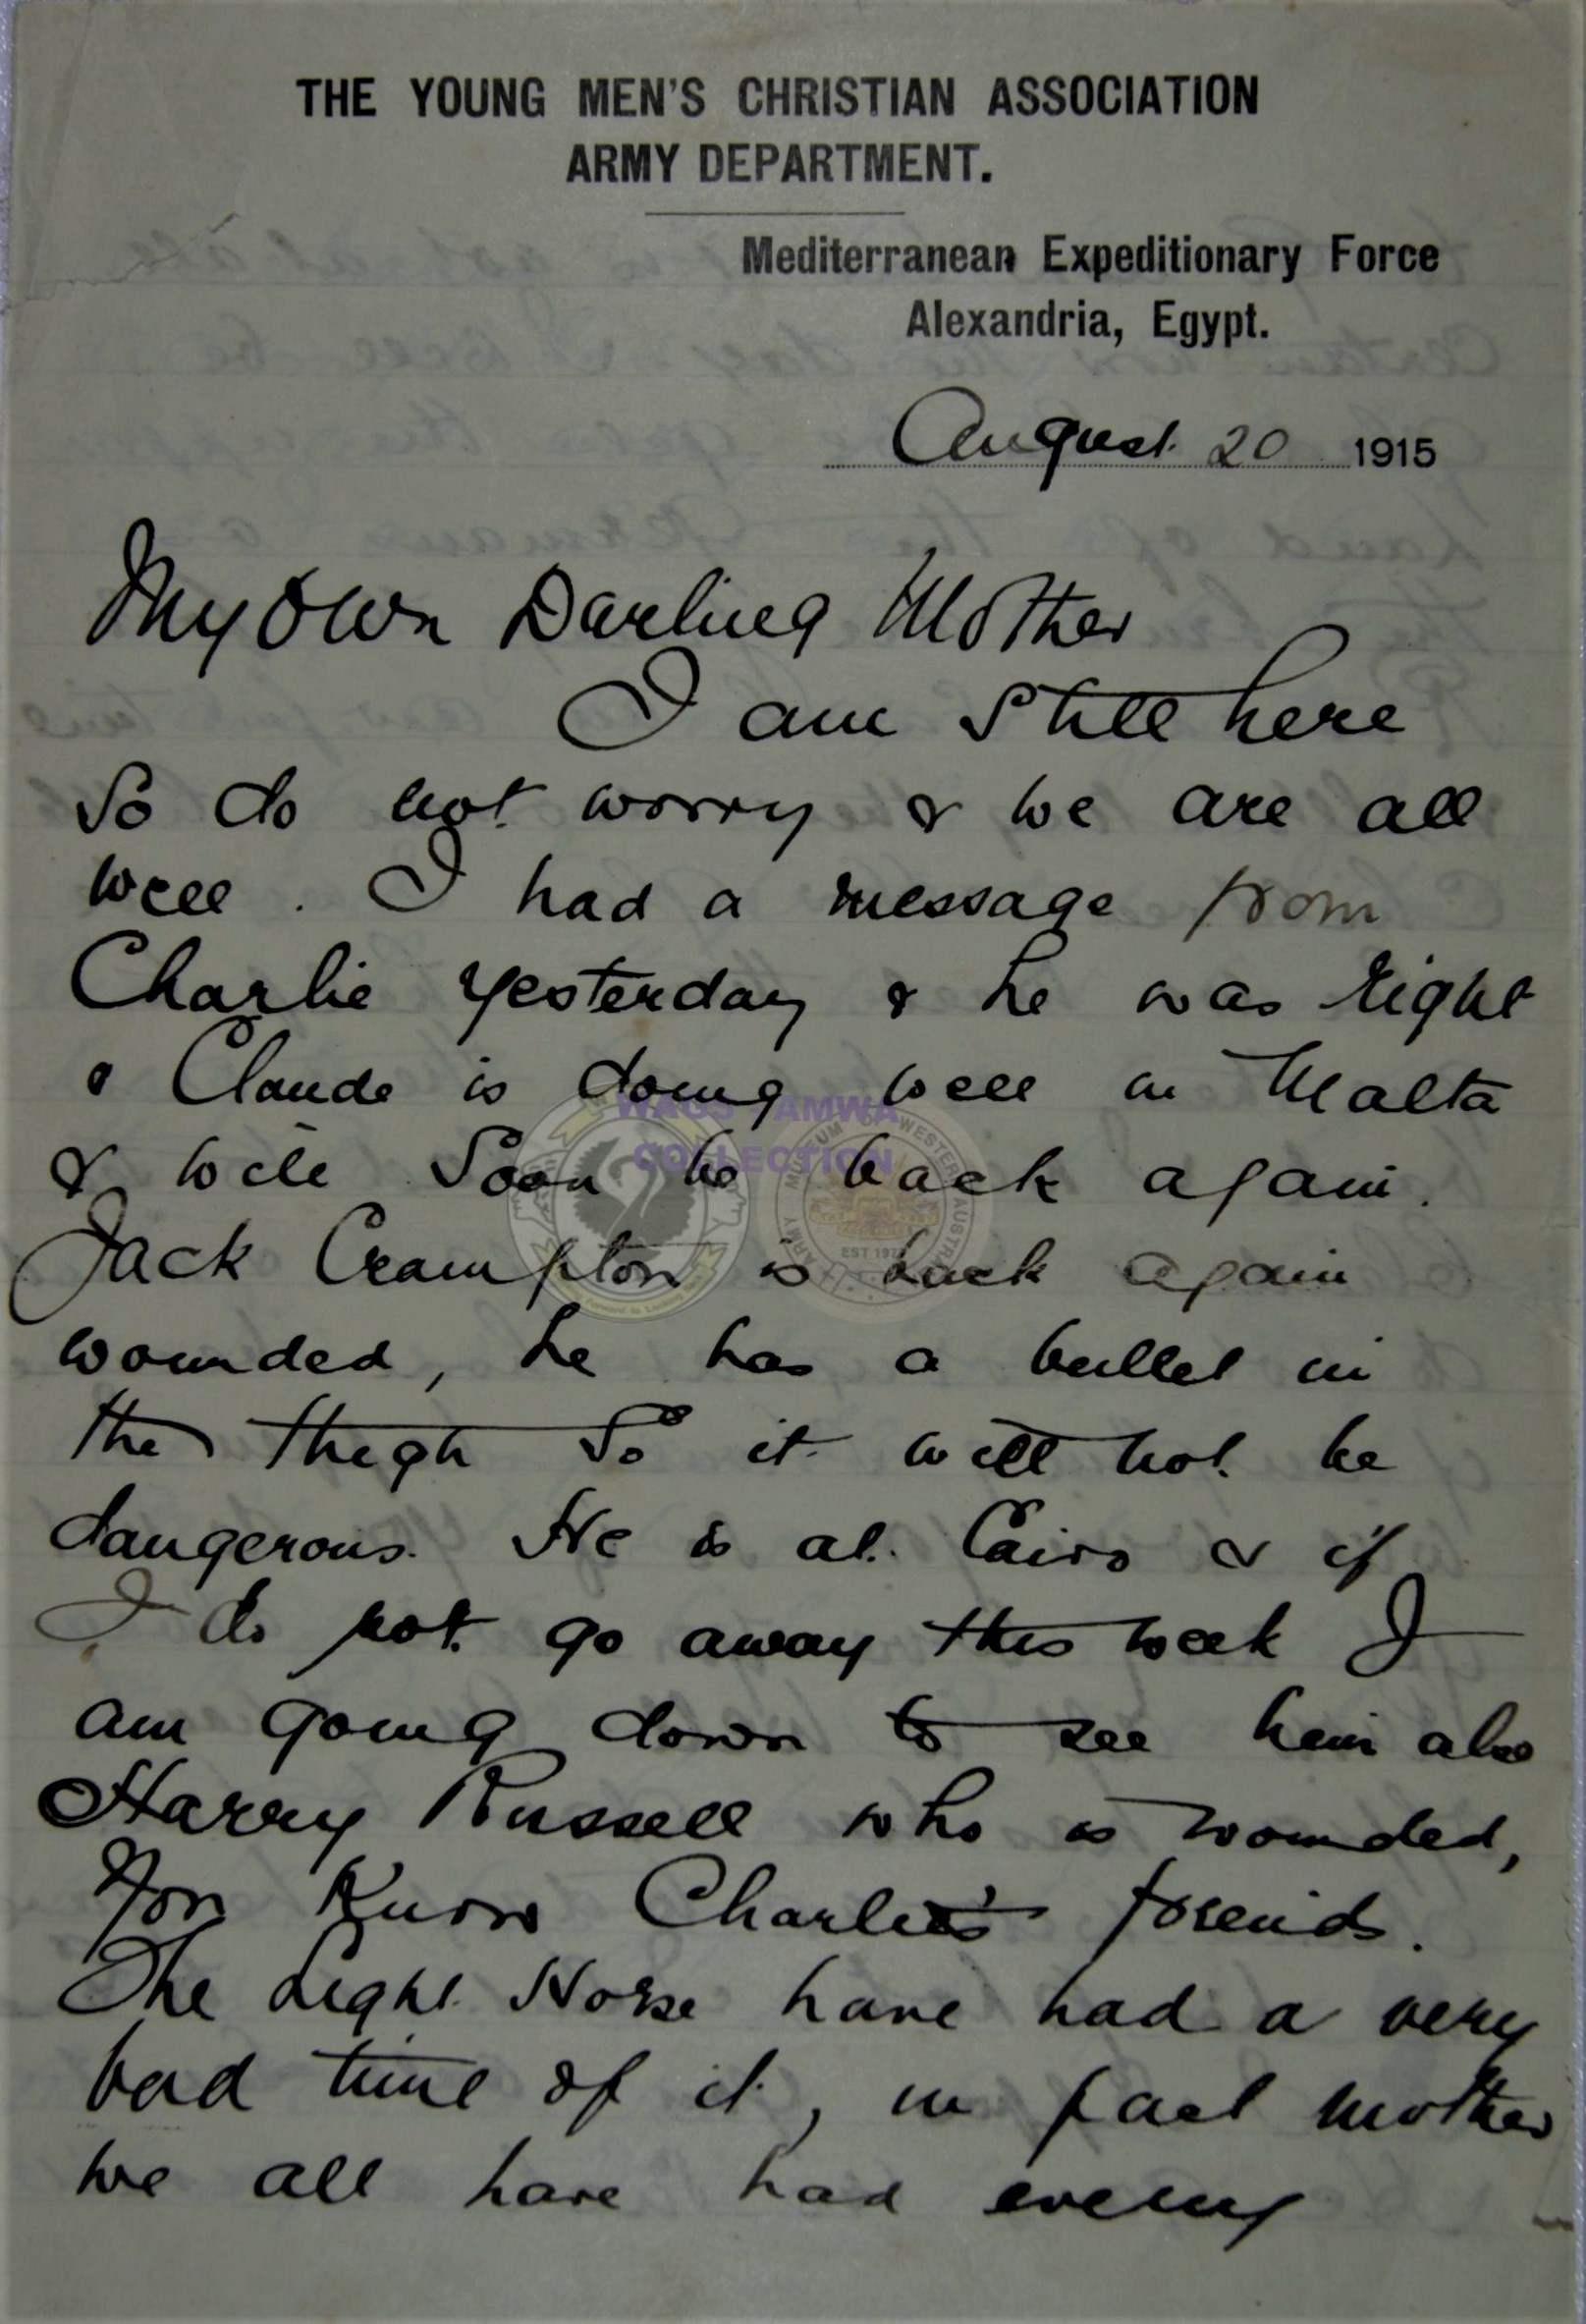 THE YOUNG MEN'S CHRISTIAN ASSOCIATION
ARMY DEPARTMENT.
Mediterranean Expeditionary Force
Alexandria, Egypt.
August 20 1915
My Own Darling Mother
I am still here
So do not worry & we are all
well. I had a message from
Charlie yesterday & he was right
& Claude is doing well in Malta
& will soon be back again.
Jack Crampton is back again
wounded, he has a bullet in
the thigh so it will not be
dangerous. He is at Cairo & if
I do not go away this week I
am going down to see him also
Harry Russell who is wounded,
You know Charlie's friends.
The Light Horse have had a very
bad time of it, in fact mother
we all have had
WAGS - AMWA
COLLECTION
ARMY MUSEUM OF WESTERN AUSTRALIA
EST 1977